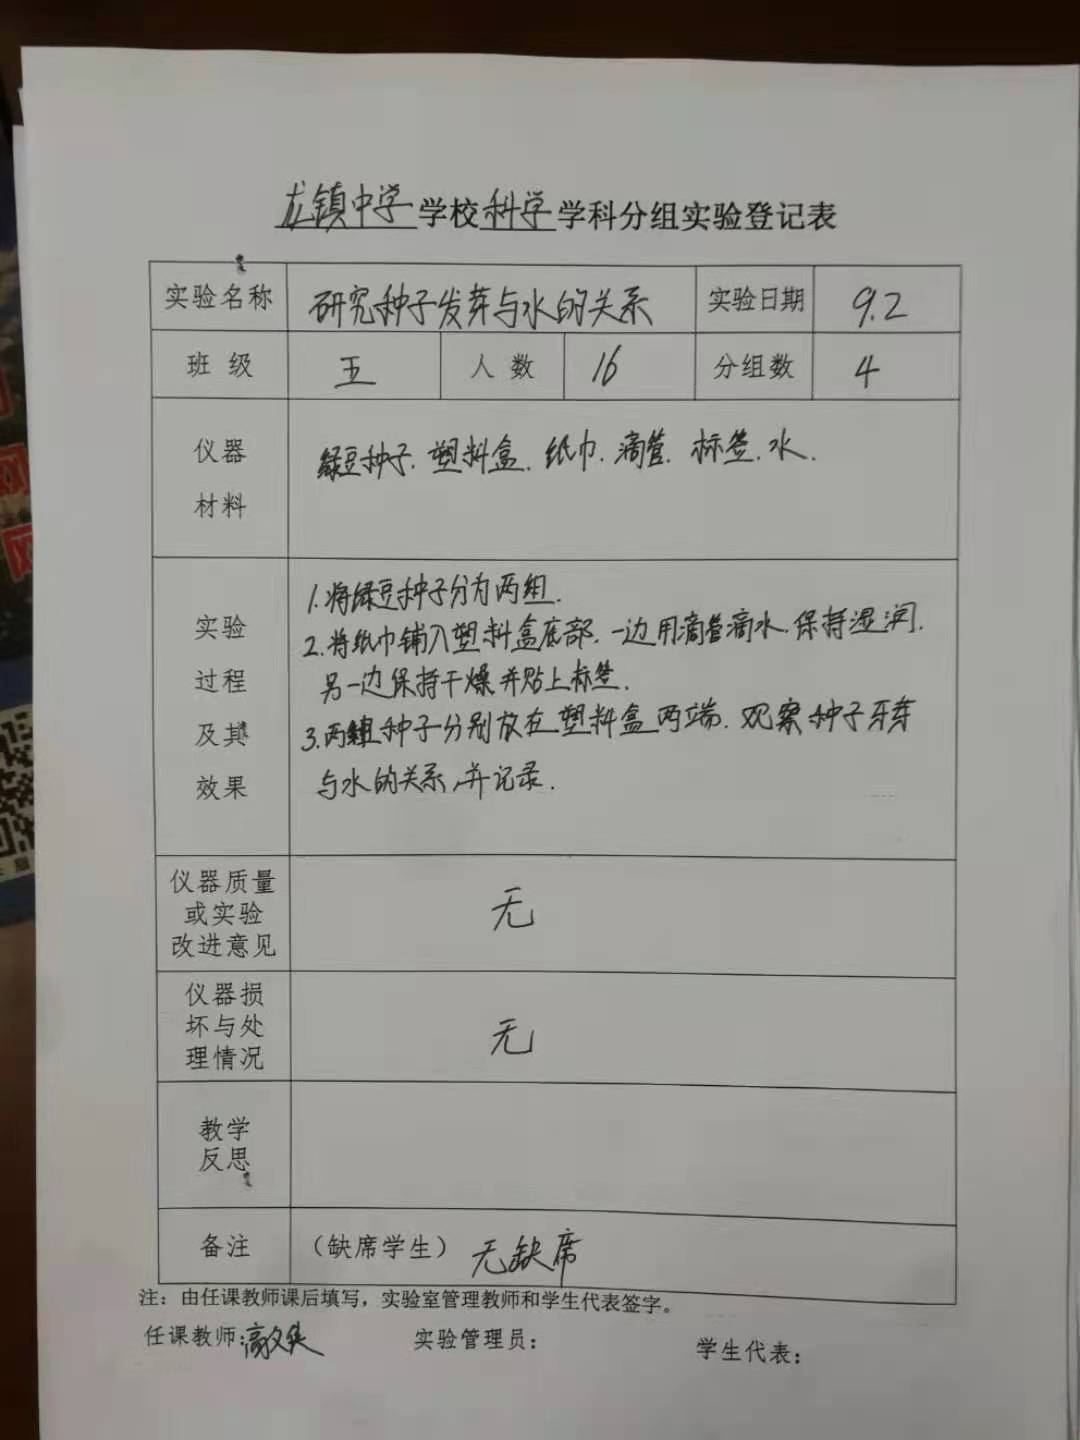 龙镇中学学校科学学科分组实验登记表
实验名称 研究种子发芽与水的关系 实验日期 9.2
班 级 五 人 数 16 分组数 4
仪器
材料
绿豆种子. 塑料盒. 纸巾. 滴管. 标签. 水.
实验
过程
及其
效果
1.将绿豆种子分为两组.
2.将纸巾铺入塑料盒底部. 一边用滴管滴水.保持湿润.
另一边保持干燥并贴上标签.
3.两组种子分别放在塑料盒两端. 观察种子牙芽
与水的关系,并记录.
仪器质量
或实验
改进意见
无
仪器损
坏与处
理情况
无
教学
反思
备注 （缺席学生） 无缺席
注：由任课教师课后填写，实验室管理教师和学生代表签字。
任课教师: 实验管理员： 学生代表：